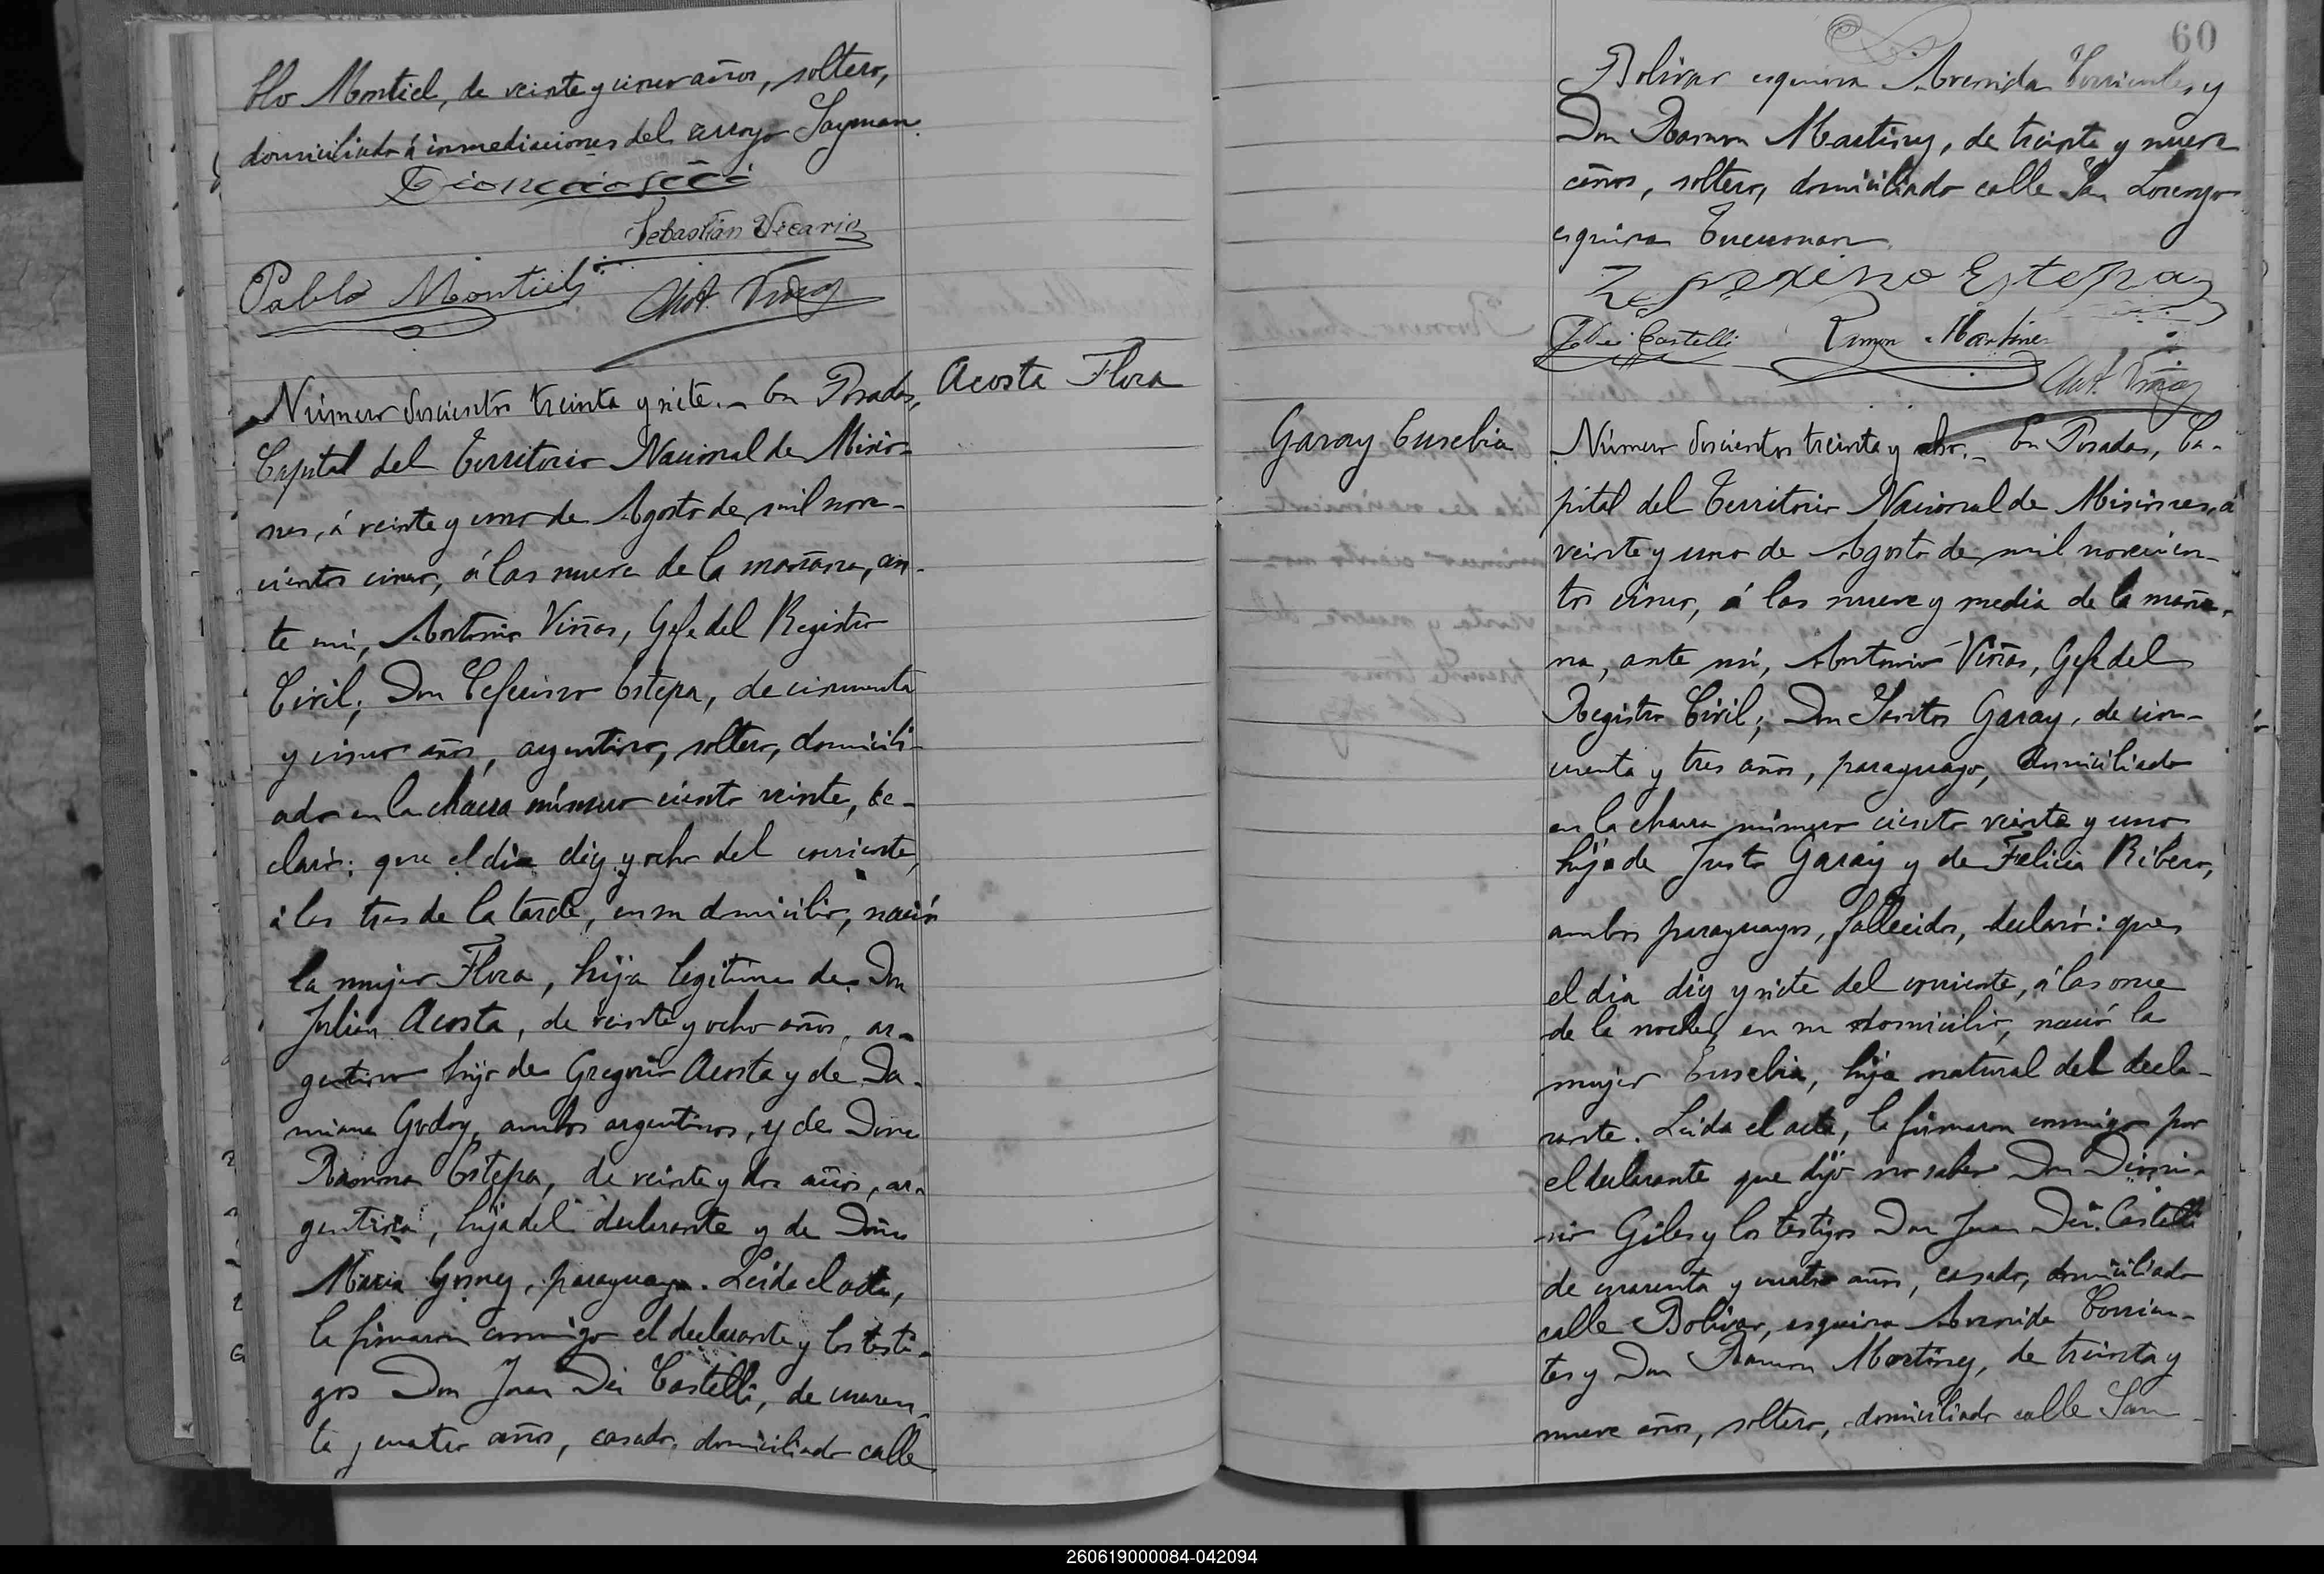 blo Montiel, de veinte y cinco años, soltero,
domiciliado á inmediaciones del arroyo Sayman.
Sebastián Vicario
Pablo Montiel
Ant. Viñas
Acosta Flora
Número doscientos treinta y siete. - En Posadas,
Capital del Territorio Nacional de Misio-
nes, á veinte y uno de Agosto de mil nove-
cientos cinco, á las nueve de la mañana, an-
te mi, Antonio Viñas, Gefe del Registro
Civil; Don Ceferino Estepa, de cincuenta
y cinco años, argentino, soltero, domicili-
ado en la chacra número ciento veinte, de-
claró: que el dia diez y ocho del corriente,
á las tres de la tarde, en su domicilio, nació
la mujer Flora, hija legitima de Don
Julian Acosta, de veinte y ocho años, ar-
gentino hijo de Gregorio Acosta y de Da-
miana Godoy, ambos argentinos, y de Dona
Ramona Estepa, de veinte y dos años, ar-
gentina, hija del declarante y de Doña
Maria Gomez, paraguaya. Leida el acta,
la firmaron conmigo el declarante y los testi-
gos Don Juan Dei Castelli, de cuaren-
ta y cuatro años, casado, domiciliado calle
60
Bolivar esquina Avenida Corrientes, y
Don Ramon Martinez, de treinta y nueve
años, soltero, domiciliado calle San Lorenzo
esquina Tucuman.
Zeferino Estepa
J. Dei Castelli
Ramon Martinez
Ant. Viñas
Garay Eusebia
Número doscientos treinta y ocho. - En Posadas, Ca-
pital del Territorio Nacional de Misiones, á
veinte y uno de Agosto de mil novecien-
tos cinco, á las nueve y media de la maña-
na, ante mi, Antonio Viñas, Gefe del
Registro Civil; Don Santos Garay, de cin-
cuenta y tres años, paraguayo, domiciliado
en la chacra número ciento veinte y uno
hijo de Justo Garay y de Felicia Ribero,
ambos paraguayos, fallecidos, declaró: que
el dia diez y siete del corriente, á las once
de la noche, en su domicilio, nació la
mujer Eusebia, hija natural del decla-
rante. Leida el acta, la firmaron conmigo por
el declarante que dijo no saber Don Dioni-
sio Giles y los testigos Don Juan Dei Castelli
de cuarenta y cuatro años, casado, domiciliado
calle Bolivar, esquina Avenida Corrien-
tes y Don Ramon Martinez, de treinta y
nueve años, soltero, domiciliado calle San
260619000084-042094